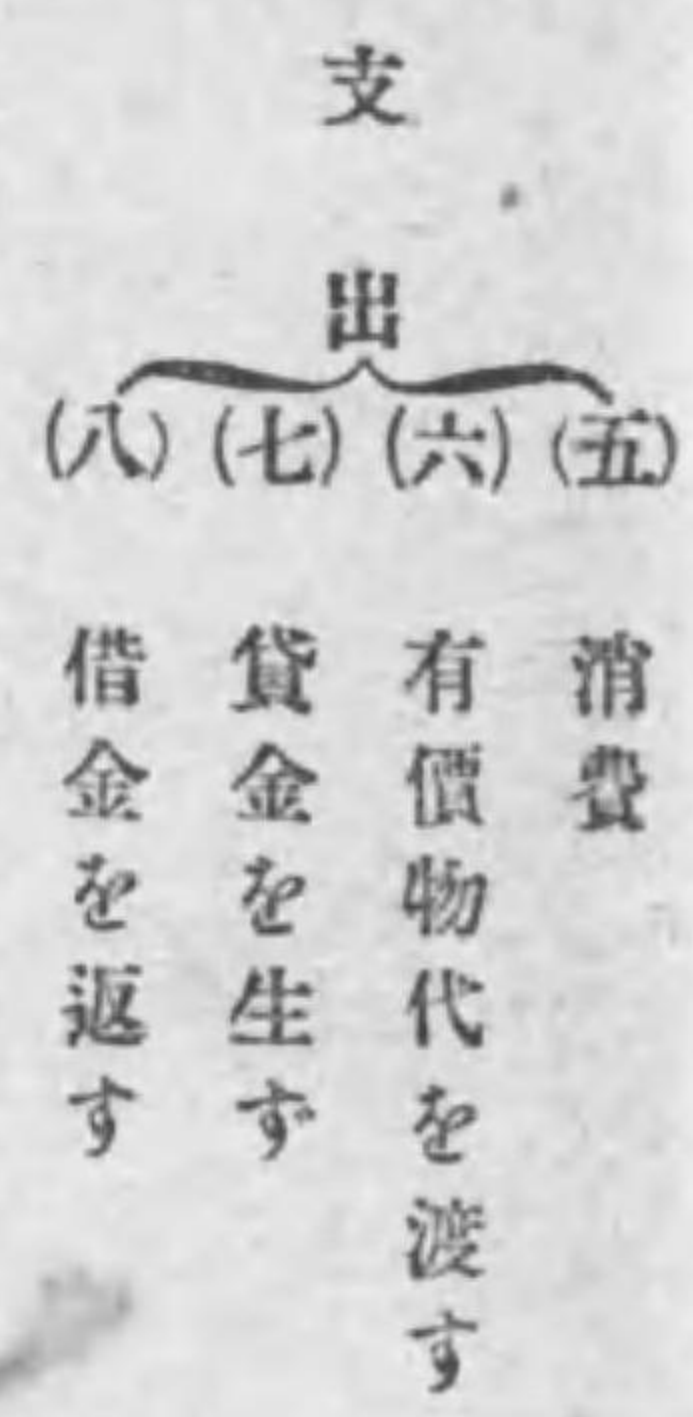 支出
(五)消費
(六)有價物代を渡す
(七)貸金を生ず
(八)借金を返す